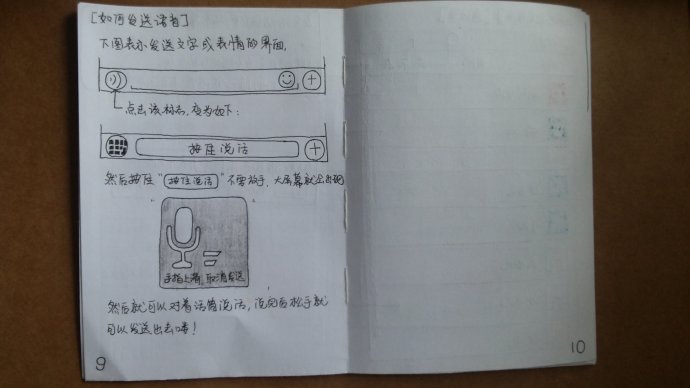 [如何发送语音]
下图表示发送文字或表情的界面.
点击该标志,变为如下:
按住说话
然后按住“按住说话”不要放手,大屏幕就会出现
手指上滑 取消发送
然后就可以对着话筒说话,说完后松手就
可以发送出去喽!
9
10